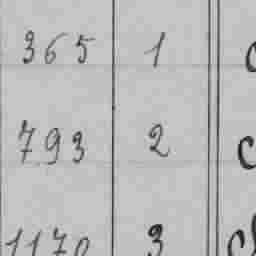 365 1 c
793 2 c
1170 3 cl